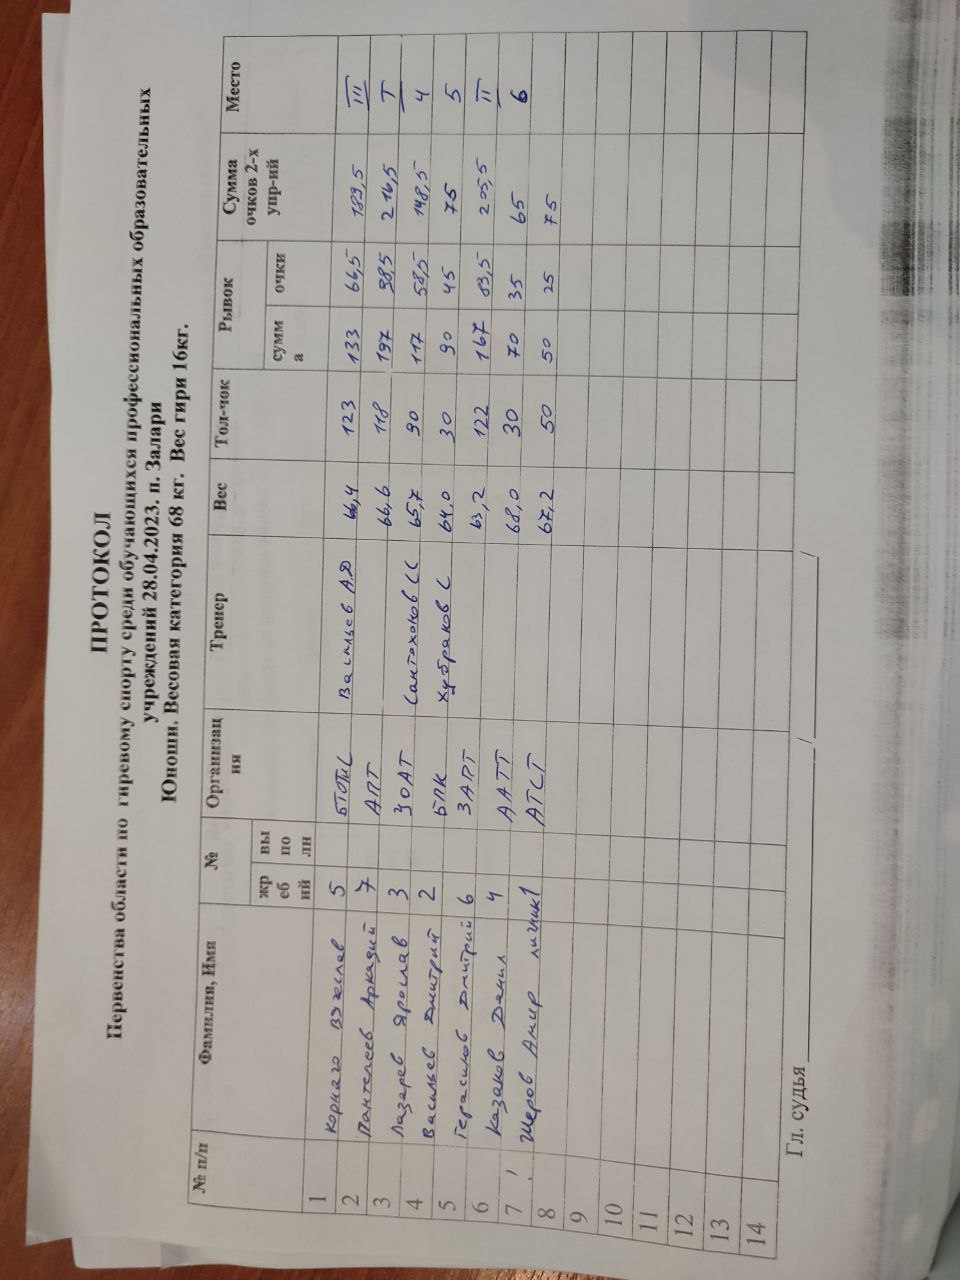 ПРОТОКОЛ
Первенства области по гиревому спорту среди обучающихся профессиональных образовательных
учреждений 28.04.2023. п. Залари
Юноши. Весовая категория 68 кг. Вес гири 16кг.
№ п/п Фамилия, Имя № Организац ия Тренер Вес Тол-чок Рывок Сумма очков 2-х упр-ий Место
жр еб ий вы по лн сумм а очки
1 Корнаго Вячеслав 5 Васильев А.Д 66,4 123 133 66,5 189,5 III
2 Пантелеев Аркадий 7 АПТ 66,6 118 197 98,5 216,5 I
3 Лазарев Ярослав 3 ЗОАТ 65,7 90 117 58,5 148,5 4
4 Васильев Дмитрий 2 БПК Хубраков С 64,0 30 90 45 75 5
5 Герасимов Дмитрий 6 ЗАПТ 63,2 122 167 83,5 205,5 II
6 Казаков Данил 4 ААТТ 68,0 30 70 35 65 6
7 Шеров Амир личник 1 АТСТ 67,2 50 50 25 75
8
9
10
11
12
13
14
Гл. судья ____________________/____________________/